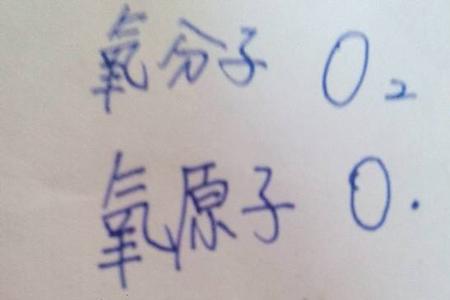 氧分子 O₂
氧原子 O.